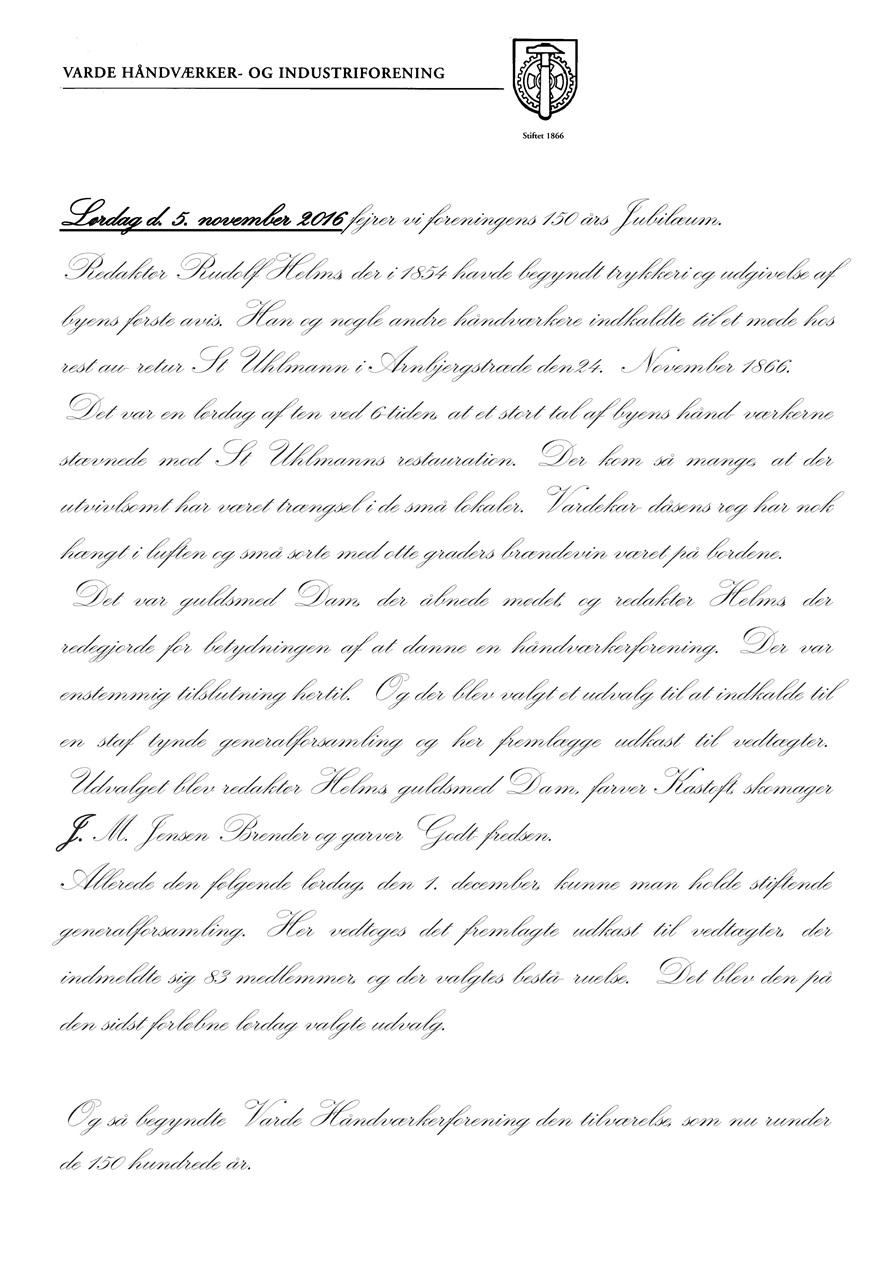 VARDE HÅNDVÆRKER- OG INDUSTRIFORENING
Stiftet 1866
Lørdag d. 5. november 2016 fejrer vi foreningens 150 års Jubilæum.
Redaktør Rudolf Helms, der i 1854 havde begyndt trykkeri og udgivelse af
byens første avis. Han og nogle andre håndværkere indkaldte til et møde hos
rest au- retur St Uhlmann i Arnbjergstræde den 24. November 1866.
Det var en lørdag af ten ved 6-tiden, at et stort tal af byens hånd- værkerne
stævnede mod St Uhlmanns restauration. Der kom så mange, at der
utvivlsomt har været trængsel i de små lokaler. Vardekar- dåsens røg har nok
hængt i luften og små sorte med otte graders brændevin været på bordene.
Det var guldsmed Dam, der åbnede mødet, og redaktør Helms, der
redegjorde for betydningen af at danne en håndværkerforening. Der var
enstemmig tilslutning hertil. Og der blev valgt et udvalg til at indkalde til
en staf tynde generalforsamling og her fremlægge udkast til vedtægter.
Udvalget blev redaktør Helms, guldsmed Dam, farver Kastoft, skomager
J. M. Jensen Brender og garver Godt- fredsen.
Allerede den følgende lørdag, den 1. december, kunne man holde stiftende
generalforsamling. Her vedtoges det fremlagte udkast til vedtægter, der
indmeldte sig 83 medlemmer, og der valgtes bestå- ruelse. Det blev den på
den sidst forløbne lørdag valgte udvalg.
Og så begyndte Varde Håndværkerforening den tilværelse, som nu runder
de 150 hundrede år.